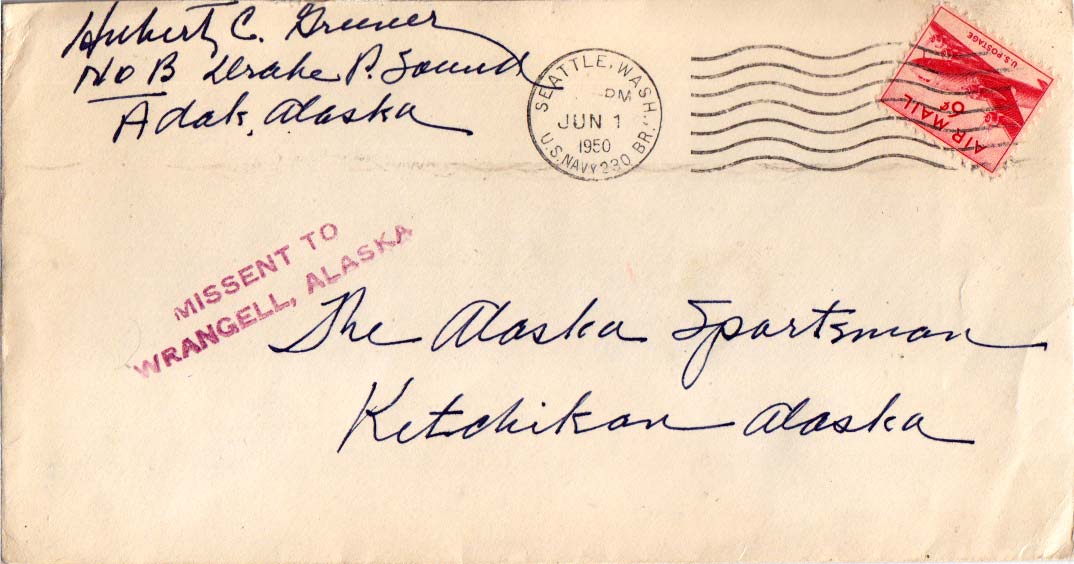 Hubert C. Gruner
NOB Drake P. Sound
Adak, Alaska
SEATTLE, WASH.
PM
JUN 1
1950
U.S. NAVY 230 BR.
U.S. POSTAGE
6¢
AIR MAIL
MISSENT TO
WRANGELL, ALASKA
The Alaska Sportsman
Ketchikan Alaska